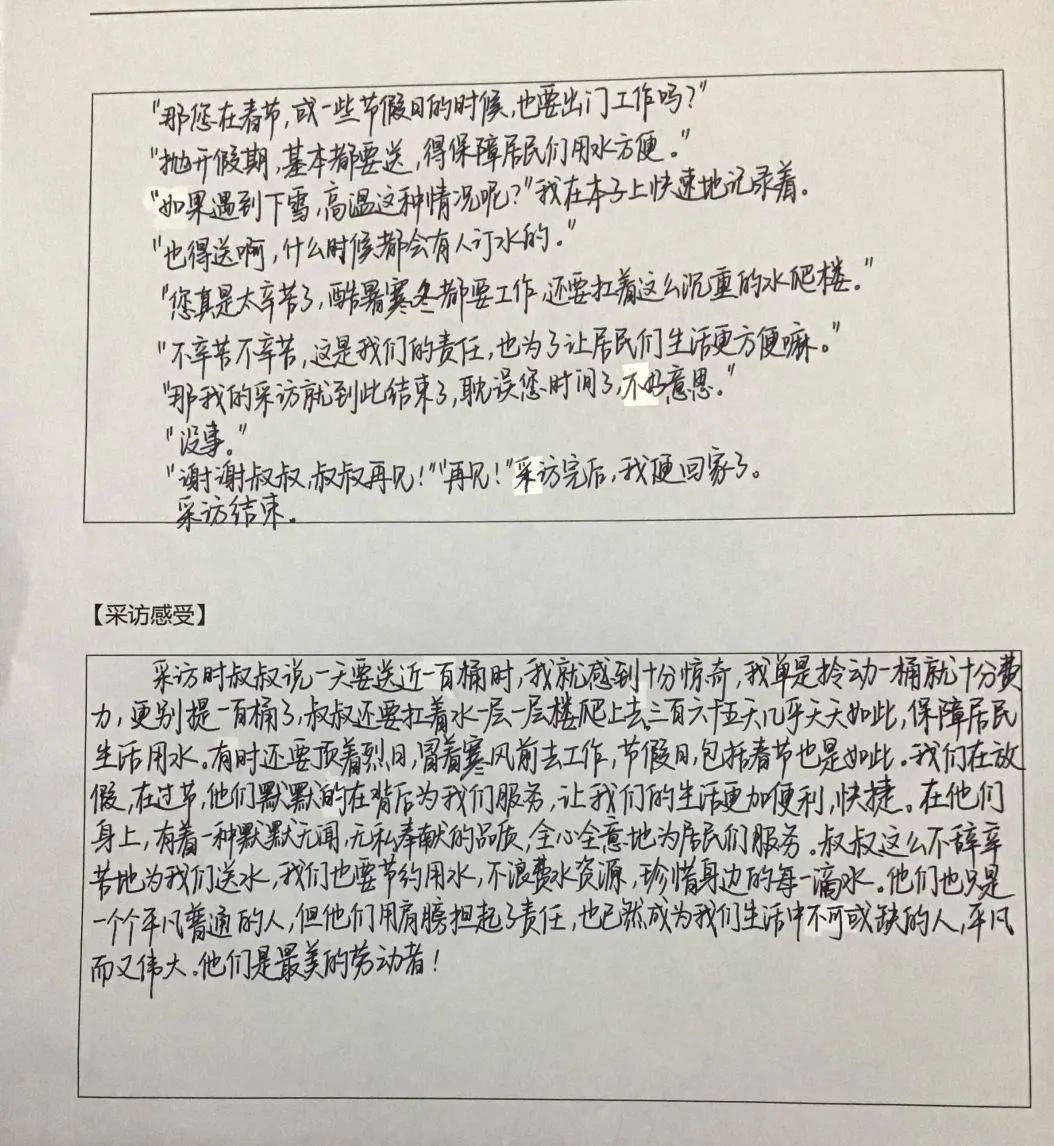 "那您在春节,或一些节假日的时候,也要出门工作吗?"
"抛开假期,基本都要送,得保障居民们用水方便。"
"如果遇到下雪,高温这种情况呢?"我在本子上快速地记录着。
"也得送啊,什么时候都会有人订水的。"
"您真是太辛苦了,酷暑寒冬都要工作,还要扛着这么沉重的水爬楼。"
"不辛苦不辛苦,这是我们的责任,也为了让居民们生活更方便嘛。"
"那我的采访就到此结束了,耽误您时间了,不好意思。"
"没事。"
"谢谢叔叔,叔叔再见!""再见!"采访完后,我便回家了。
采访结束。
【采访感受】
采访时叔叔说一天要送近一百桶时,我就感到十分惊奇,我单是拎动一桶就十分费
力,更别提一百桶了,叔叔还要扛着水一层一层楼爬上去,三百六十五天几乎天天如此,保障居民
生活用水。有时还要顶着烈日,冒着寒风前去工作,节假日,包括春节也是如此。我们在放
假,在过节,他们默默的在背后为我们服务,让我们的生活更加便利,快捷。在他们
身上,有着一种默默无闻,无私奉献的品质,全心全意地为居民们服务。叔叔这么不辞辛
苦地为我们送水,我们也要节约用水,不浪费水资源,珍惜身边的每一滴水。他们也只是
一个个平凡普通的人,但他们用肩膀担起了责任,也已然成为我们生活中不可或缺的人,平凡
而又伟大。他们是最美的劳动者!